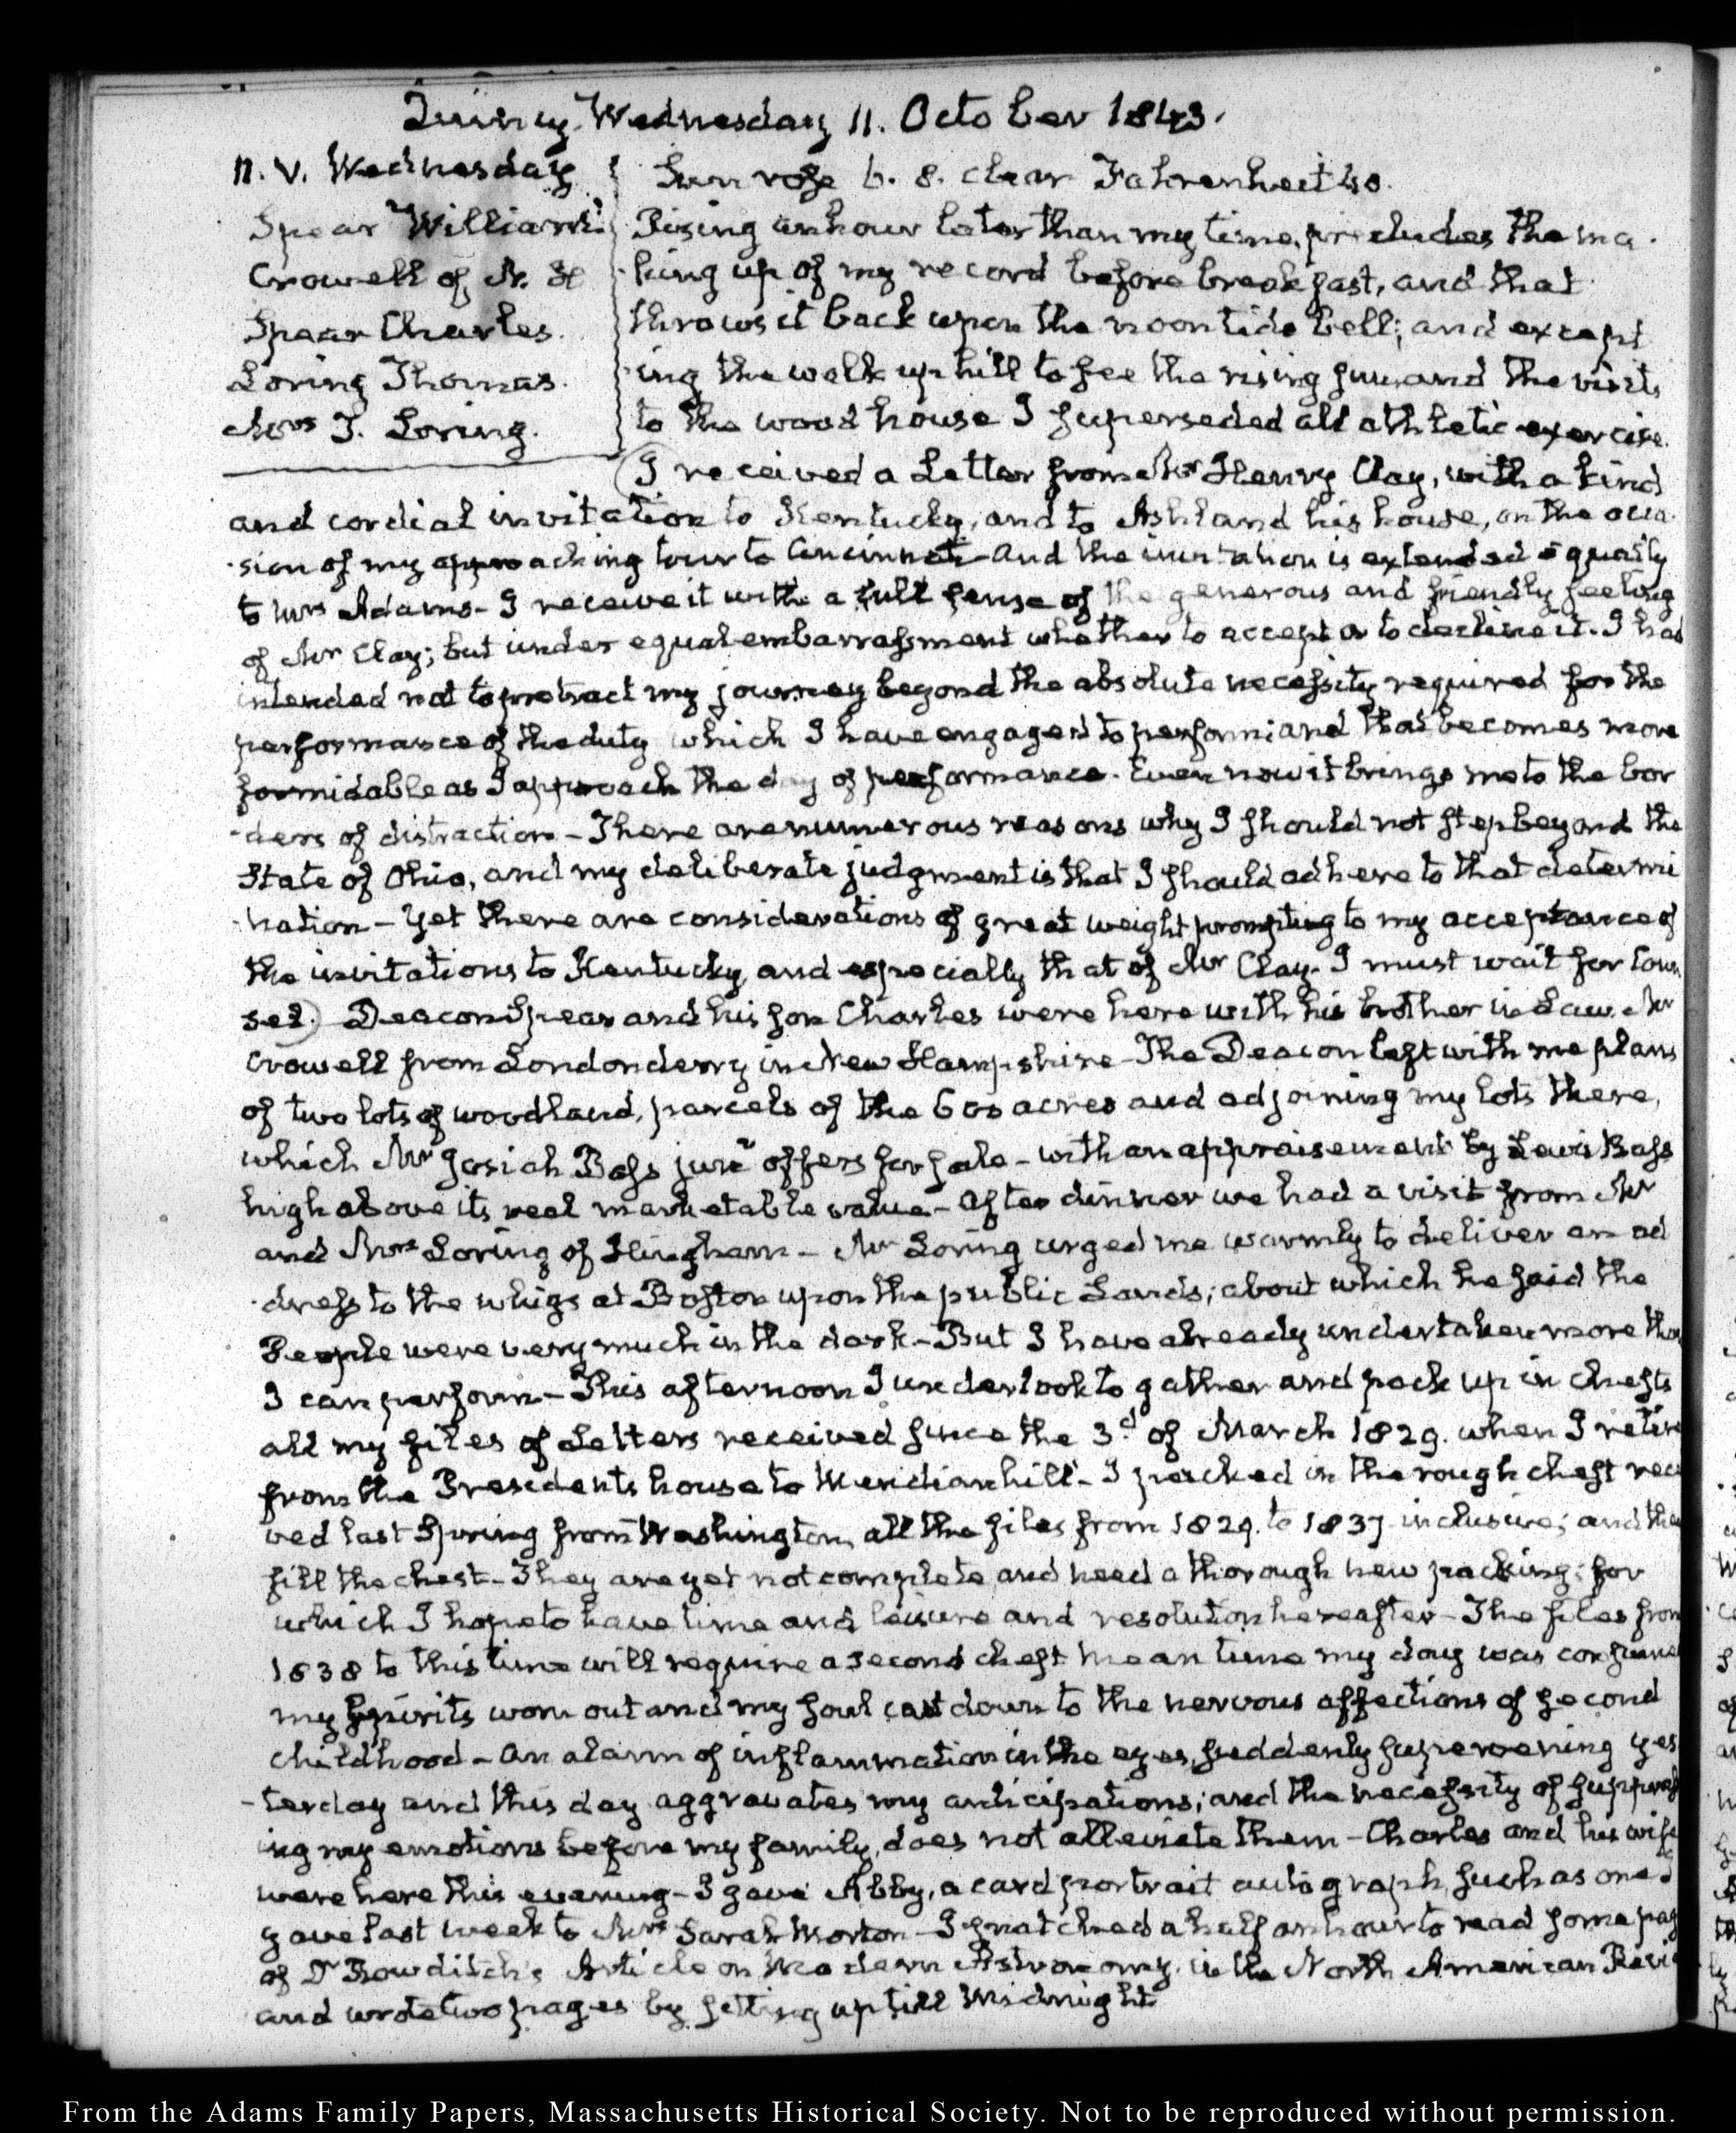 Quincy Wednesday 11. October 1843.
11. V. Wednesday
Spear William
Crowell of N. H
Spear Charles.
Loring Thomas.
Mrs T. Loring.
Sun rose 6. 8. clear Fahrenheit 40.
Rising an hour later than my time, precludes the ma-
-king up of my record before breakfast, and that
throws it back upon the noon tide bell; and except
-ing the walk up hill to see the rising sun, and the visits
to the wood house I superseded all athletic exercise.
(I received a Letter from Mr Henry Clay, with a kind
and cordial invitation to Kentucky, and to Ashland his house, on the occa-
-sion of my approaching tour to Cincinnati—And the invitation is extended equally
to Mrs Adams—I receive it with a full sense of the generous and friendly feeling
of Mr Clay; but under equal embarrassment whether to accept or to decline it. I had
intended not to protract my journey beyond the absolute necessity required for the
performance of the duty which I have engaged to perform; and that becomes more
formidable as I approach the day of performance. Even now it brings me to the bor
-ders of distraction—There are numerous reasons why I should not step beyond the
State of Ohio, and my deliberate judgment is that I should adhere to that determi
-nation—Yet there are considerations of great weight prompting to my acceptance of
the invitations to Kentucky, and especially that of Mr Clay—I must wait for coun
sel.) Deacon Spear and his son Charles were here with his brother in Law Mr
Crowell from Londonderry in New Hampshire—The Deacon left with me plans
of two lots of woodland, parcels of the 600 acres and adjoining my lots there,
which Mr Josiah Bass junr offers for sale—with an appraisement by Lewis Bass
high above its real marketable value—After dinner we had a visit from Mr
and Mrs Loring of Hingham—Mr Loring urged me warmly to deliver an ad
-dress to the whigs at Boston upon the public Lands; about which he said the
People were very much in the dark—But I have already undertaken more than
I can perform—This afternoon I undertook to gather and pack up in chests
all my files of Letters received since the 3d of March 1829. when I retire
from the Presidents house to Meridian hill—I packed in the rough chest recei
ved last Spring from Washington, all the files from 1829. to 1837 inclusive; and they
fill the chest—They are yet not complete and need a thorough new packing; for
which I hope to have time and leisure and resolution hereafter—The files from
1838 to this time will require a second chest mean time my day was consumed
my spirits worn out and my soul cast down to the nervous affections of second
childhood—An alarm of inflammation in the eyes, suddenly supervening yes
-terday and this day aggravates my anticipations; and the necessity of suppress
ing my emotions before my family, does not alleviate them—Charles and his wife
were here this evening—I gave Abby, a card portrait autograph, such as one I
gave last week to Mrs Sarah Morton—I snatched a half an hour to read some pag
of Dr Bowditch's Article on Modern Astronomy, in the North American Revie
and wrote two pages by setting up till Midnight.
From the Adams Family Papers, Massachusetts Historical Society. Not to be reproduced without permission.